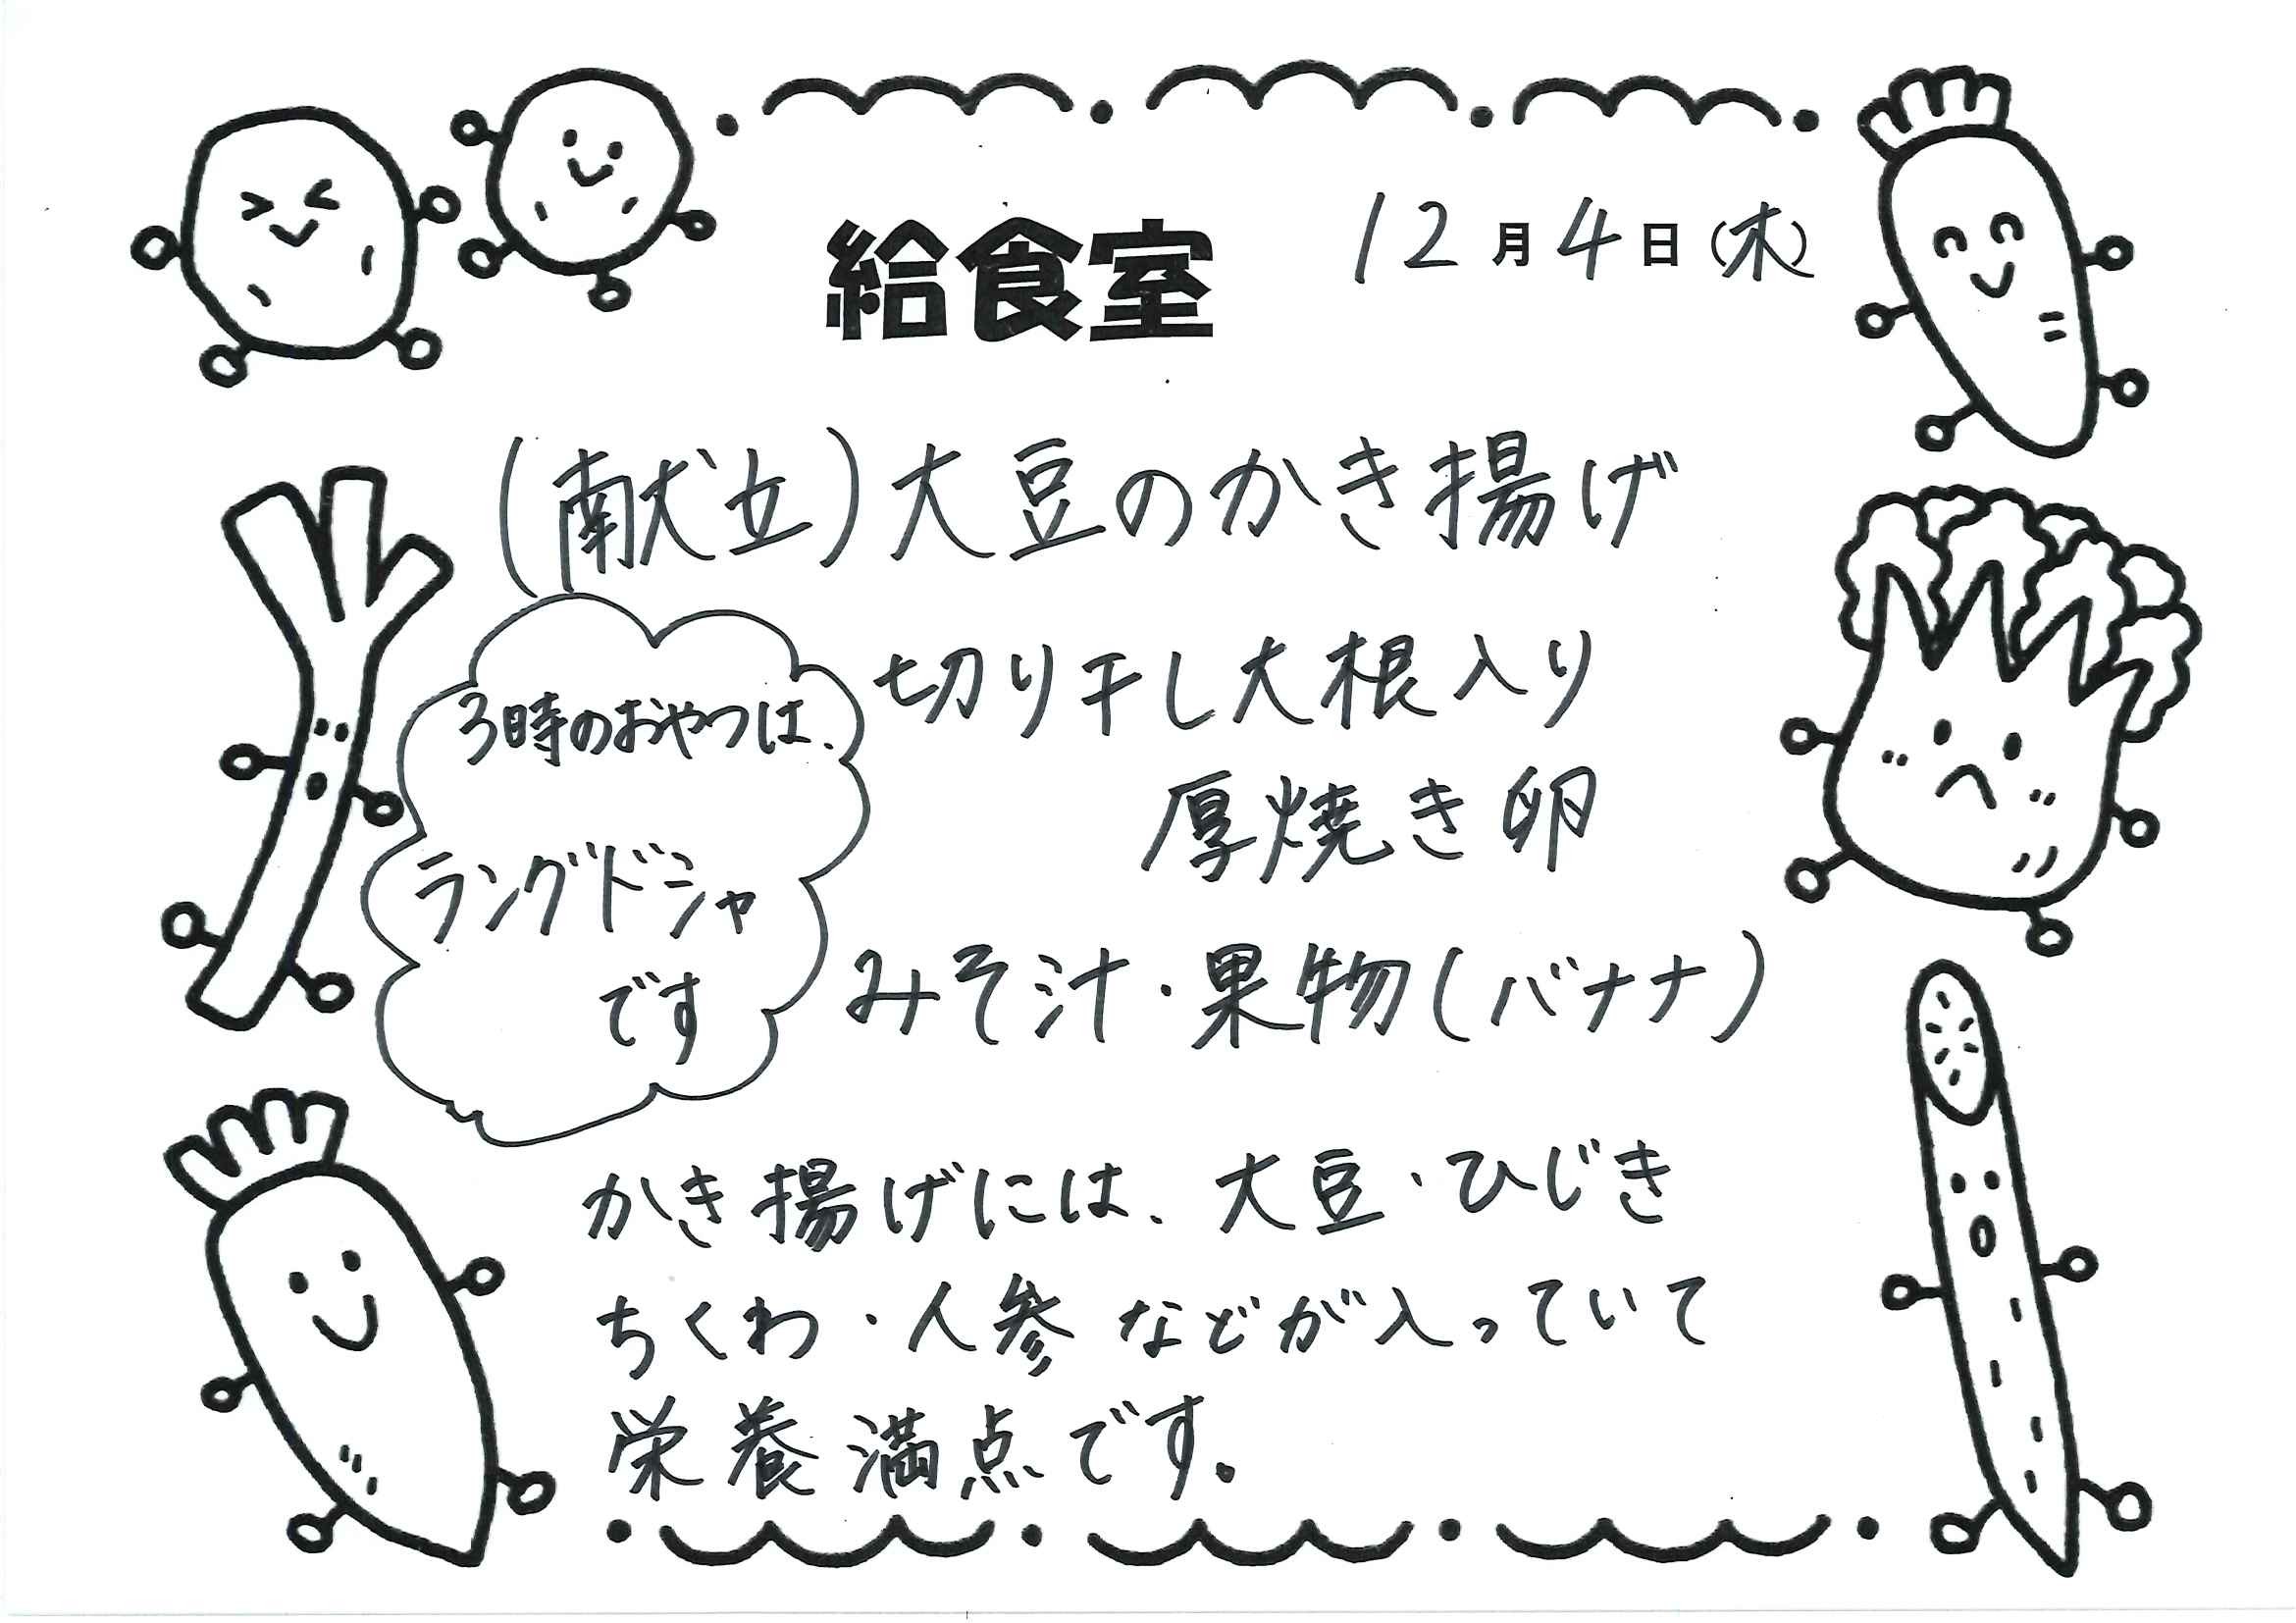 給食室
12月4日(木)
(献立)大豆のかき揚げ
切り干し大根入り
厚焼き卵
みそ汁・果物(バナナ)
3時のおやつは、
ラングドシャ
です
かき揚げには、大豆・ひじき
ちくわ・人参などが入っていて
栄養満点です。